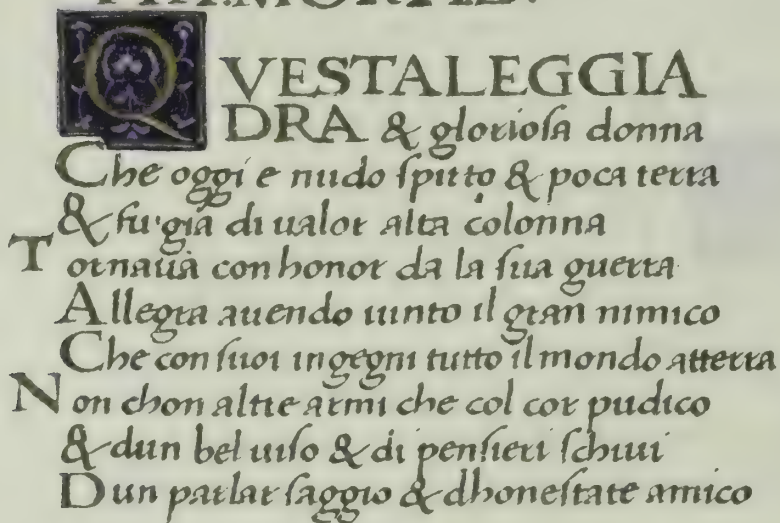 QVESTALEGGIA
DRA & glorioſa donna
Che oggi e nudo ſpirto & poca terra
& fu gia di ualor alta colonna
Tornaua con honor da la ſua guerra
Allegra auendo uinto il gran nimico
Che con ſuoi ingegni tutto il mondo atterra
Non chon altre armi che col cor pudico
& dun bel uiſo & di penſieri ſchiui
Dun parlar ſaggio & dhoneſtate amico